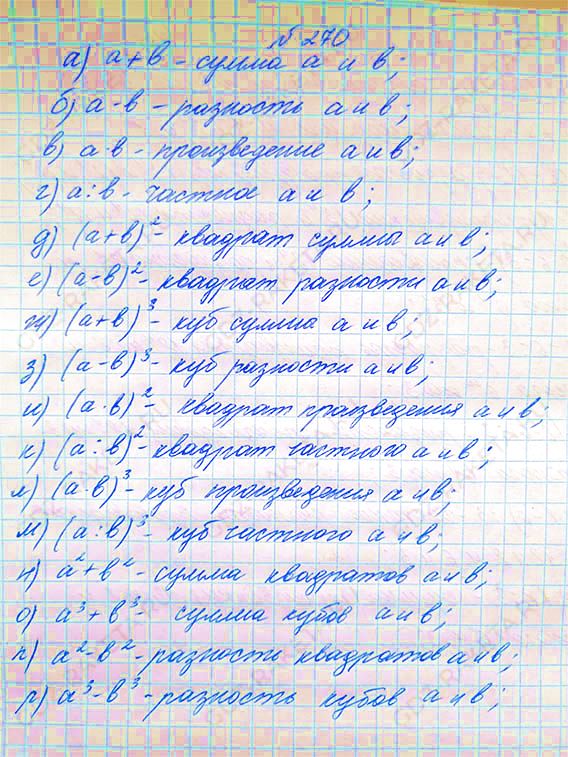 № 270
а) а + в - сумма а и в;
б) а - в - разность а и в;
в) а · в - произведение а и в;
г) а : в - частное а и в;
д) (а + в)² - квадрат суммы а и в;
е) (а - в)² - квадрат разности а и в;
ж) (а + в)³ - куб сумма а и в;
з) (а - в)³ - куб разности а и в;
и) (а · в)² - квадрат произведения а и в;
к) (а : в)² - квадрат частного а и в;
л) (а · в)³ - куб произведения а и в;
м) (а : в)³ - куб частного а и в;
н) а² + в² - сумма квадратов а и в;
о) а³ + в³ - сумма кубов а и в;
п) а² - в² - разности квадратов а и в;
р) а³ - в³ - разность кубов а и в;